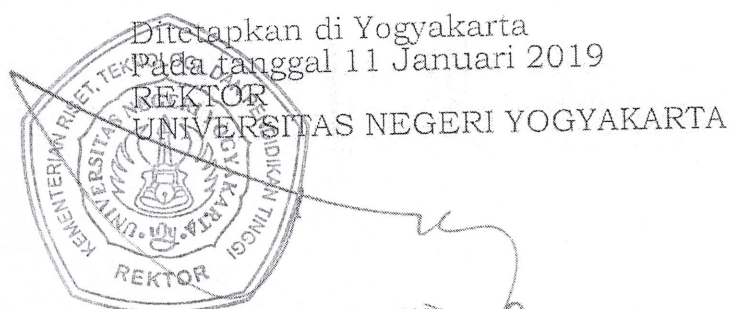 Ditetapkan di Yogyakarta
Pada tanggal 11 Januari 2019
REKTOR
UNIVERSITAS NEGERI YOGYAKARTA
KEMENTERIAN RISET, TEKNOLOGI, DAN PENDIDIKAN TINGGI
UNIVERSITAS NEGERI YOGYAKARTA
REKTOR